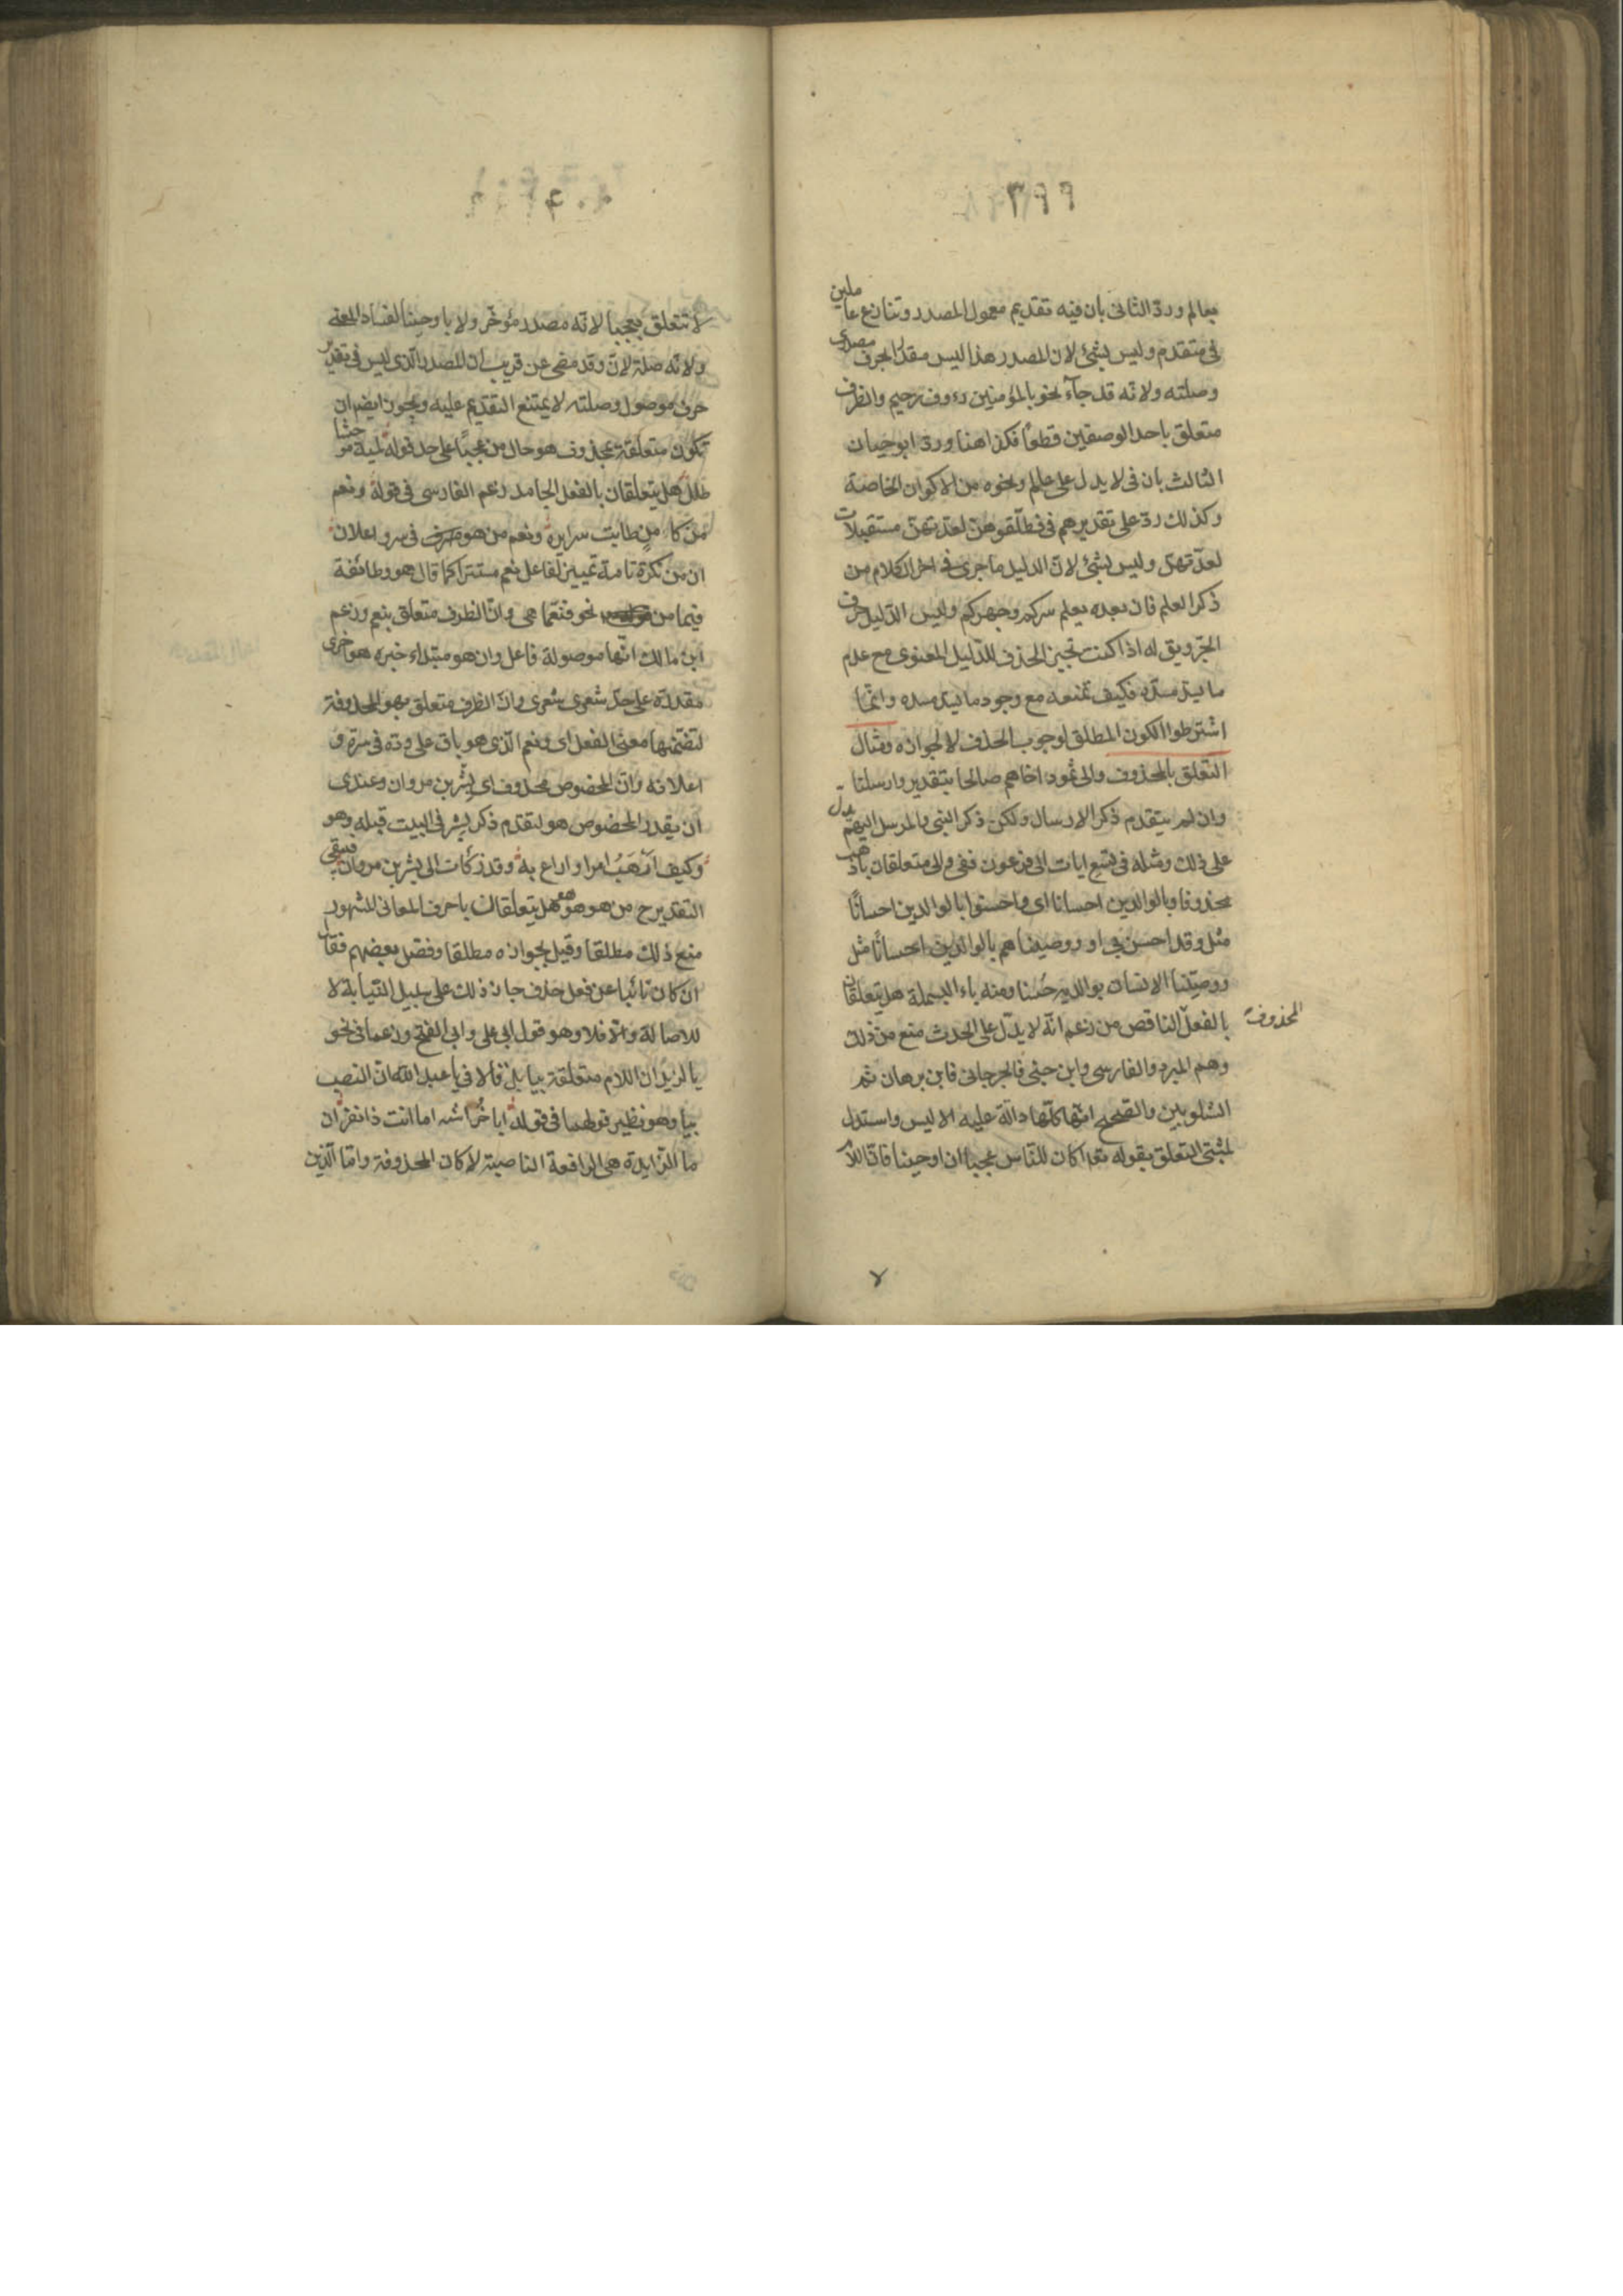 ٣٩٩
بعالم وردّ الثانى بأن فيه تقديم معمول المصدر وتنازع عاملين
فى متقدم وليس بشئ لان المصدر هذا ليس مقدرا بحرف مصدرى
وصلته ولانه قد جآء نحو بالمؤمنين رءوف رحيم والظرف
متعلق باحد الوصفين قطعا فكذا هنا وردّ ابو حيان
الثالث بان فى لا يدل على عالم ونحوه من الاكوان الخاصة
وكذلك ردّ على تقديرهم فى فطلّقوهنّ لعدّتهنّ مستقبلات
لعدّتهنّ وليس بشئ لانّ الدليل ما جرى فى اخر الكلام من
ذكر العلم فان بعده يعلم سركم وجهركم وليس الدّليل حرف
الجرّ ويق له اذا كنت تجيز الحذف للدّليل المعنوى مع عدم
ما يسدّ مسدّه فكيف تمنعه مع وجود ما يسدّ مسده وانّما
اشترطوا الكون المطلق لوجوب الحذف لا لجوازه ومثال
التعلّق بالمحذوف والى ثمود اخاهم صالحا بتقدير وارسلنا
وان لم يتقدم ذكر الارسال ولكن ذكر النبى والمرسل اليهم يدلّ
على ذلك ومثله فى تسع ايات الى فرعون ففى والى متعلقان باذهب
محذوفا وبالوالدين احسانا اى واحسنوا بالوالدين احسانًا
مثل وقد احسن بى او ووصيناهم بالوالدين احسانًا مثل
ووصيّنا الانسان بوالديه حُسنا ومنه باء البسملة هل يتعلقان
بالفعل الناقص من زعم انّه لا يدّل على الحدث منع من ذلك
المحذوف
وهم المبرد والفارسى وابن جنى فالجرجانى فابن برهان ثم
الشلوبين والصّحيح انّها كلّها دالّة عليه الا ليس واستدل
لمثبتى التعلق بقوله تعا اكان للنّاس عجبا ان اوحينا فانّ اللام
٤٠٠
لا تتعلق بعجبا لانّه مصدر مؤخّر ولا باوحينا لفساد المعنى
ولانّه صلة لان وقد مضى عن قريب ان المصدر الّذى ليس فى تقدير
حرف موصول وصلته لا يمتنع التقديم عليه ويجوز ايضا ان
تكون متعلّقة بمحذوف هو حال من عجبًا على حد قوله لمية موحشا
طلل هل يتعلقان بالفعل الجامد زعم الفارسى فى قوله ونعم
مزكأ من طابت سرايره ونعم من هو فى سر واعلان
ان من نكرة تامة تمييز لفاعل نعم مستتر كما قال هو وطائفة
فيما من نحو فنعّما هى وانّ الظرف متعلق بنعم وزعم
ابن مالك انّها موصولة فاعل وان هو مبتداء خبره هو اخرى
مقدرة على حدّ شعرى شعرى وانّ الظرف متعلق بهو المحذوفة
لتضمّنها معنى الفعل اى ونعم الّذى هو باق على ودّه فى سرّه و
اعلانه وانّ المخصوص محذوف اى بشر بن مروان وعندى
ان يقدر المخصوص هو لتقدم ذكر بشر فى البيت قبله وهو
وكيف ارهَبُ امرا او اراع به وقد زكأت الى بشر بن مروان فيبقى
التقدير ح من هو هو هو هل يتعلّقان باحرف المعانى المشهور
منع ذلك مطلقا وقيل بجوازه مطلقا وفصّل بعضهم فقال
ان كان نائبا عن فعل حذف جاز ذلك على سبيل النّيابة لا
للاصالة والّا فلا وهو قول ابى على وابى الفتح وزعما فى نحو
يا لزيد ان اللام متعلقة بيا بل قالا فى يا عبد الله ان النصب
بيا وهو نظير قولهما فى قوله ابا خُراشه اما انت ذا نفر ان
ما الزايدة هى الرافعة الناصبة لا كان المحذوفة وامّا الّذين